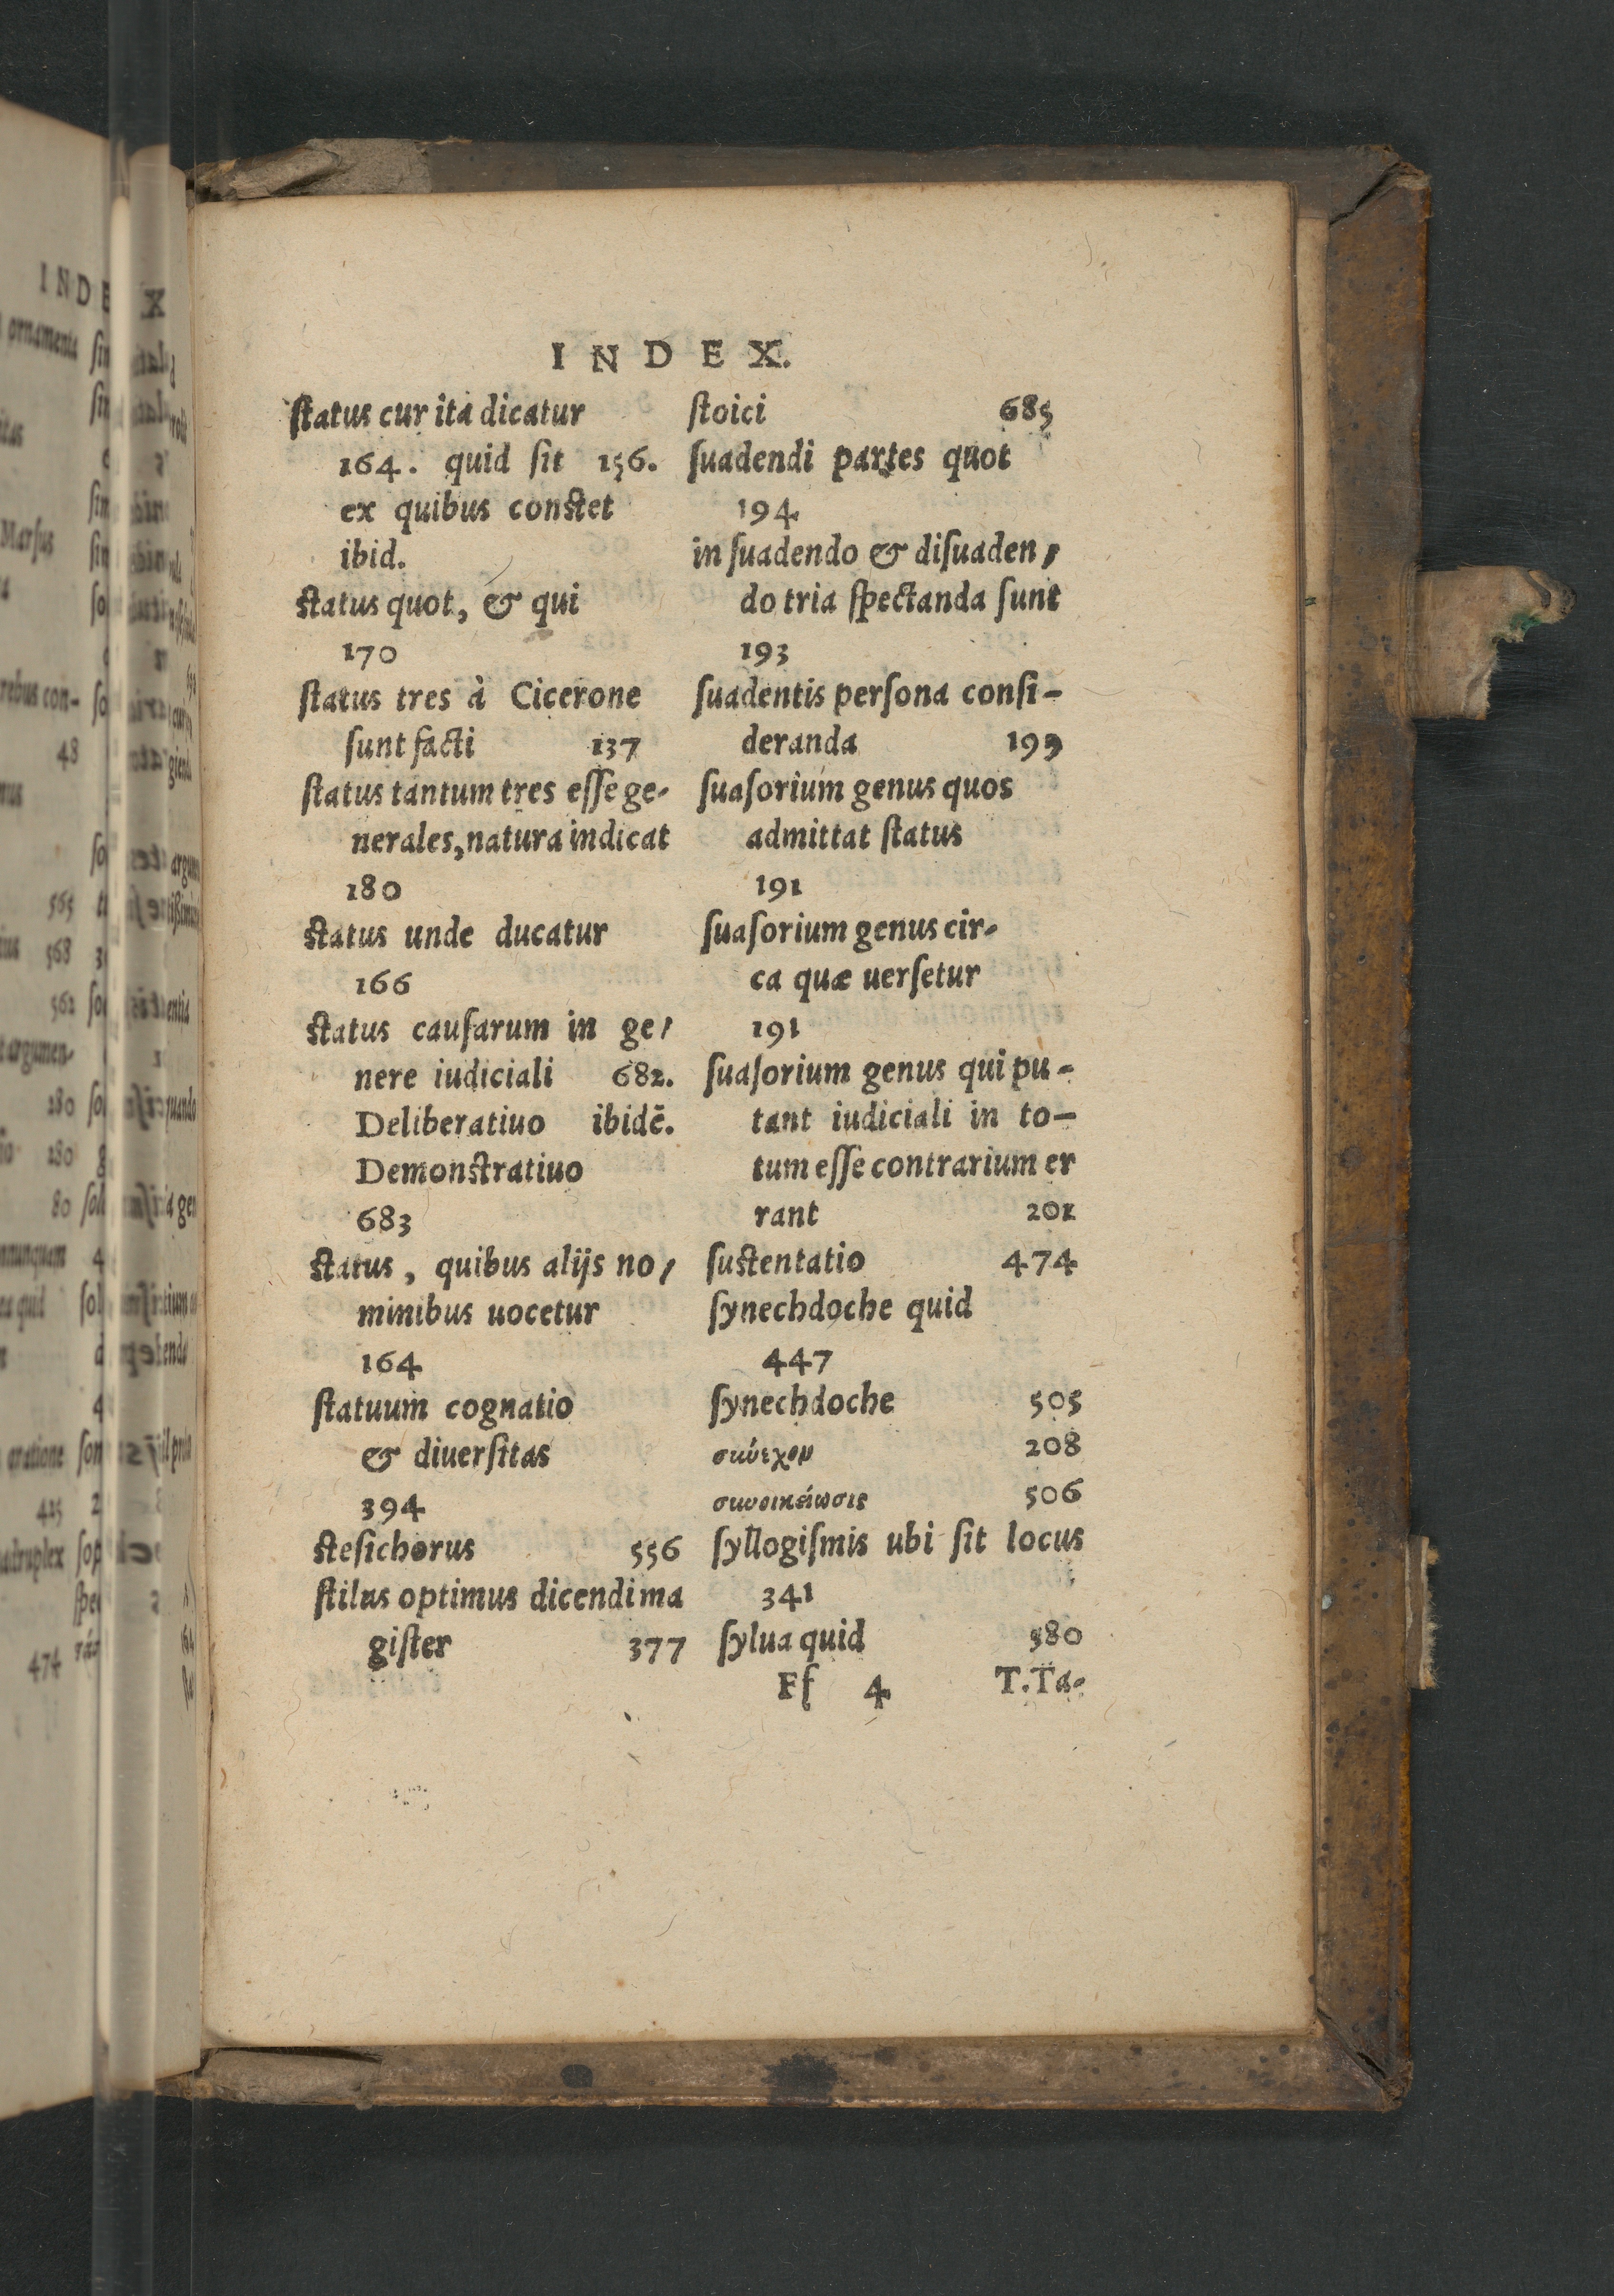 INDEX.
ſtatus cur ita dicatur
164. quid ſit 156.
ex quibus conſtet
ibid.
ſtatus quot, & qui
170
ſtatus tres à Cicerone
ſunt facti 137
ſtatus tantum tres eſſe ge-
nerales, natura indicat
180
ſtatus unde ducatur
166
ſtatus cauſarum in ge-
nere iudiciali 682.
Deliberatiuo ibidē.
Demonſtratiuo
683
ſtatus, quibus alijs no-
minibus uocetur
164
ſtatuum cognatio
& diuerſitas
394
ſteſichorus 556
ſtilus optimus dicendi ma
giſter 377
ſtoici 685
ſuadendi partes quot
194
in ſuadendo & diſuaden-
do tria ſpectanda ſunt
193
ſuadentis perſona conſi-
deranda 199
ſuaſorium genus quos
admittat ſtatus
191
ſuaſorium genus cir-
ca quæ uerſetur
191
ſuaſorium genus qui pu-
tant iudiciali in to-
tum eſſe contrarium er
rant 201
ſuſtentatio 474
ſynechdoche quid
447
ſynechdoche 505
208
συνοικείωσις 506
ſyllogiſmis ubi ſit locus
341
ſylua quid 580
Ff 4 T.Ta-